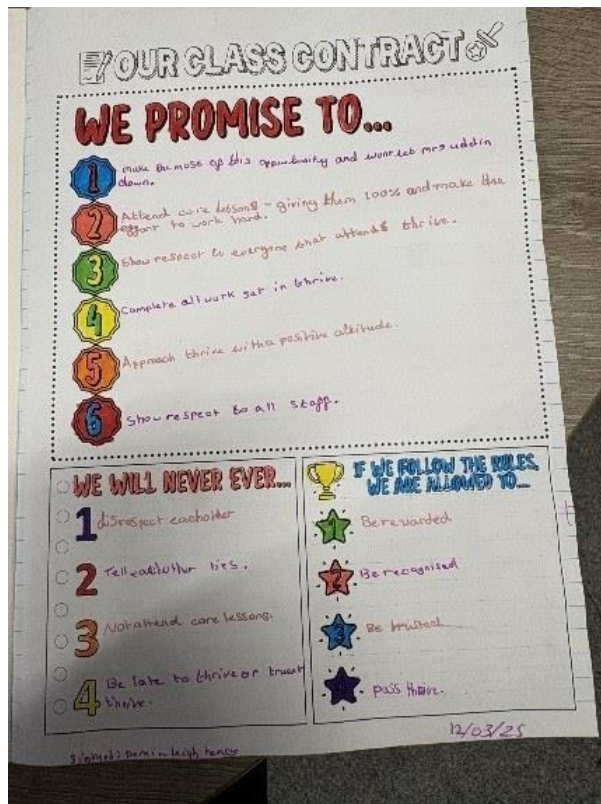 OUR CLASS CONTRACT
WE PROMISE TO...
1 make the most of this oppurtunity and wont let mrs uddin
down.
2 Attend core lessons - giving them 100% and make the
effort to work hard.
3 Show respect to everyone that attends thrive.
4 Complete all work set in thrive.
5 Approach thrive with a positive attitude.
6 Show respect to all staff.
WE WILL NEVER EVER...
1 disrespect eachother
2 Tell eachother lies.
3 Not attend core lessons.
4 Be late to thrive or truent
thrive.
IF WE FOLLOW THE RULES,
WE ARE ALLOWED TO...
1 Be rewarded
2 Be recognised
3 Be trusted
4 pass thrive.
12/03/25
signed: